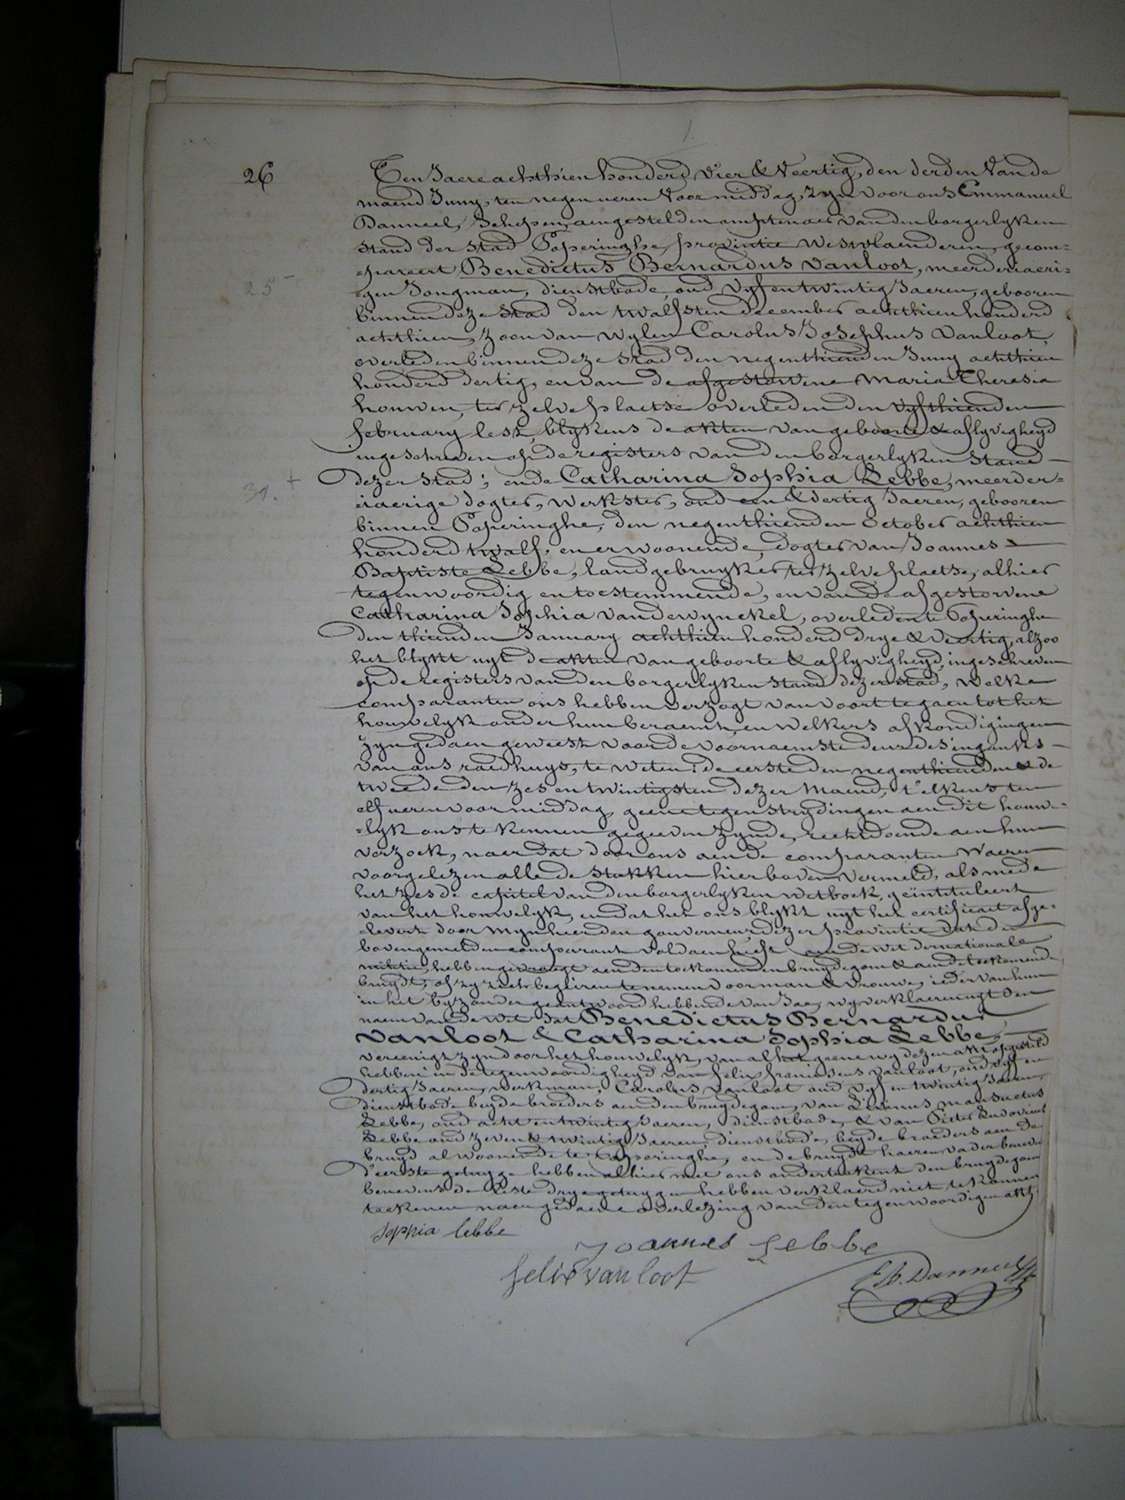 26
Ten Jaere achthien honderd vier & veertig, den derden van de
maend Juny, ten negen ueren voormiddag, zyn voor ons Emmanuel
Danneel, Schepen, aengestelden amptenaer van den borgerlyken
stand der Stad Poperinghe, provintie Westvlaenderen, gecom-
-pareert Benedictus Bernardus Vanloot, meerderjaeri-
25 -
-gen Jongman, dienstbode, oud vyf en twintig Jaeren, gebooren
binnen deze Stad den twalfsten december achthien honderd
achthien, zoon van wylen Carolus Josephus Vanloot,
overleden binnen deze Stad den negenthienden Juny achthien
honderd dertig, en van de afgestorvene Maria Theresia
houwen, ter zelve plaetse overleden den vyfthienden
february lest, blykens de akten van geboorte & aflyvigheyd
ingeschreven op de registers van den borgerlyken Stand
31. +
dezer Stad; ende Catharina Sophia Lebbe, meerder-
-jaerige dogter, werkster, oud een & dertig Jaeren, gebooren
binnen Poperinghe, den negenthienden October achthien
honderd twalf, en er woonende, dogter van Joannes
Baptiste Lebbe, landgebruyker ter zelve plaetse, alhier
tegenwoordig en toestemmende, en van de afgestorvene
Catharina Sophia Vanderwynckel, overleden te Poperinghe
den thienden January achthien honderd drye & veertig, alzoo
het blykt uyt de akten van geboorte & aflyvigheyd, ingeschreven
op de registers van den borgerlyken Stand dezer stad, Welke
comparanten ons hebben verzogt van voort te gaen tot het
houwelyk onder hun beraemt, en welkers afkondigingen
zyn gedaen geweest voor de voornaemste deure des ingangs
van ons raedhuys, te weten: de eerste den negenthienden & de
tweede den zes en twintigsten dezer maend, t'elkens ten
elf ueren voormiddag, geene tegenstrydingen aen dit houw-
-lyk ons te kennen gegeven zynde, recht doende aen hun
verzoek, naer dat door ons aen de comparanten waeren
voorgelezen alle de stukken hier boven vermeld, als mede
het zesde capitel van den borgerlyken wetboek, geintituleert
van het houwelyk, en dat het ons blykt uyt het certificaet afge-
-levert door Mynheer den gouverneur dezer provintie dat den
bovengemelden comparant voldaen heeft aen de wet der nationale
militie, hebben gevraegt aen den toekomenden bruydegom & aen de toekomende
bruydt, of zy zich begeiren te nemen voor man & vrouwe, ieder van hun
in het byzonder geantwoord hebbende van Jae, wy verklaeren uyt den
naem van de wet dat Benedictus Bernardus
Vanloot & Catharina Sophia Lebbe,
vereenigt zyn door het houwelyk, van al het geene wy dezen akt opgesteld
hebben in de tegenwoordigheyd van felix franciscus Vanloot, oud vyf en
dertig Jaeren, werkman, Carolus Vanloot oud vyf en twintig Jaeren,
dienstbode beyde broeders aen den bruydegom, van Livinus Mansuetus
Lebbe, oud acht en twintig Jaeren, dienstbode, & van Pieter Ludovicus
Lebbe oud zeven & twintig Jaeren, dienstbode, beyde broeders aen de
bruyd al woonende te Poperinghe, en de bruydt haeren vader benevens
d'eerste getuyge hebben alhier met ons onderteekent den bruydegom
benevens de leste drye getuygen hebben verklaerd niet te konnen
teekenen naer gedaene overlezing van den tegenwoordigen akt.
Sophia lebbe
Joannes Lebbe
felix van loot
E. B. Danneel